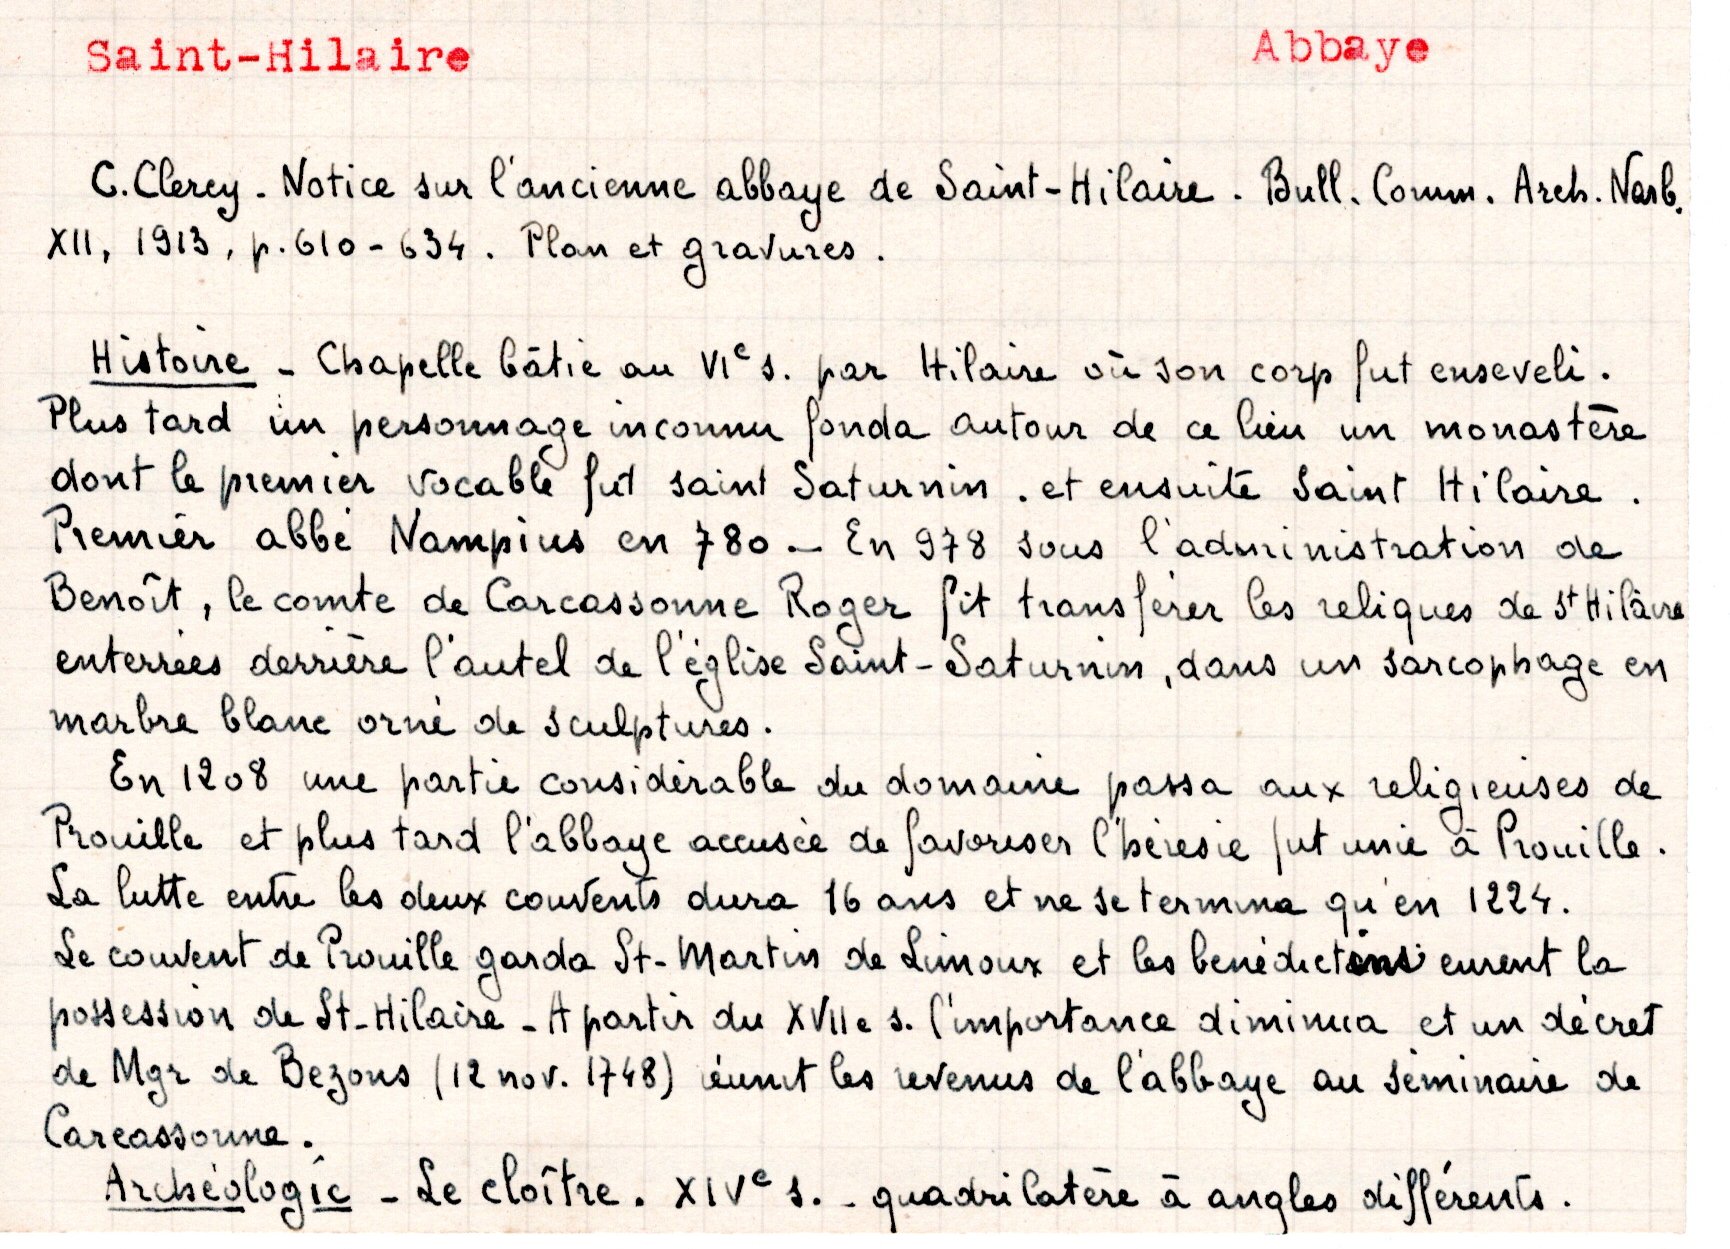 Saint-Hilaire Abbaye
C. Clercy. Notice sur l'ancienne abbaye de Saint-Hilaire. Bull. Comm. Arch. Narb.
XII, 1913, p. 610-634. Plan et gravures.
Histoire - Chapelle bâtie au VIe s. par Hilaire où son corp fut enseveli.
Plus tard un personnage inconnu fonda autour de ce lieu un monastère
dont le premier vocable fut saint Saturnin. et ensuite Saint Hilaire.
Premier abbé Nampius en 780 - En 978 sous l'administration de
Benoît, le comte de Carcassonne Roger fit transférer les reliques de St Hilaire
enterrées derrière l'autel de l'église Saint-Saturnin, dans un sarcophage en
marbre blanc orné de sculptures.
En 1208 une partie considérable du domaine passa aux religieuses de
Prouille et plus tard l'abbaye accusée de favoriser l'hérésie fut unie à Prouille.
La lutte entre les deux couvents dura 16 ans et ne se termina qu'en 1224.
Le couvent de Prouille garda St-Martin de Limoux et les bénédictins eurent la
possession de St-Hilaire - A partir du XVIIe s. l'importance diminua et un décret
de Mgr de Bezons (12 nov. 1748) réunit les revenus de l'abbaye au séminaire de
Carcassonne.
Archéologie - Le cloître. XIVe s. - quadrilatère à angles différents.